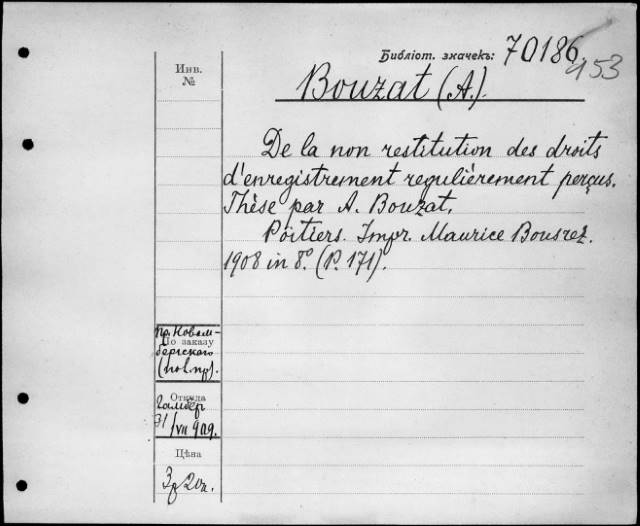 Библіот. значекъ: 70186
953
Инв.
№
Bouzat (A.).
De la non restitution des droits
d'enregistrement regulièrement perçus.
Thèse par A. Bouzat.
Poitiers. Impr. Maurice Bousrez.
1908 in 8º. (P. 171).
пр. Новом-
По заказу
бергского
Откуда
Гамбер
31/VII 909.
Цѣна
3р 20к.